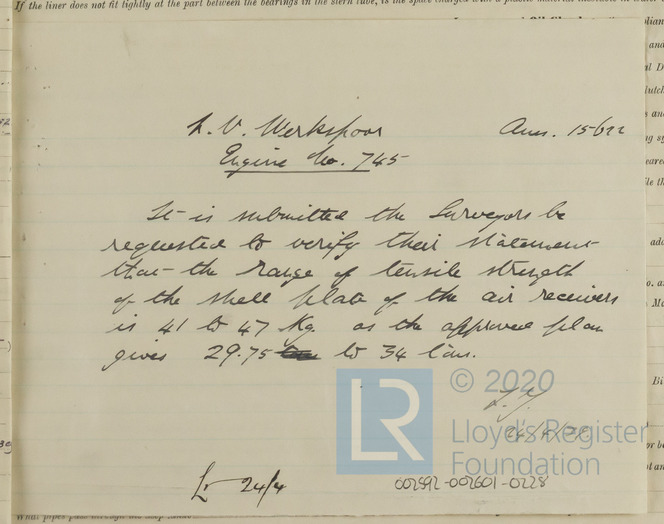 If the liner does not fit tightly at the part between the bearings in the stern tube, is the space charged with a plastic material insoluble in water
N. V. Werkspoor Ams. 15622
Engine No. 745
It is submitted the Surveyors be
requested to verify their statement
that the range of tensile strength
of the shell plate of the air receivers
is 41 to 47 Kg as the approved plan
gives 29.75 to 34 tons.
© 2020
LR
Lloyd's Register
Foundation
Lr 24/4
002592-002601-0228